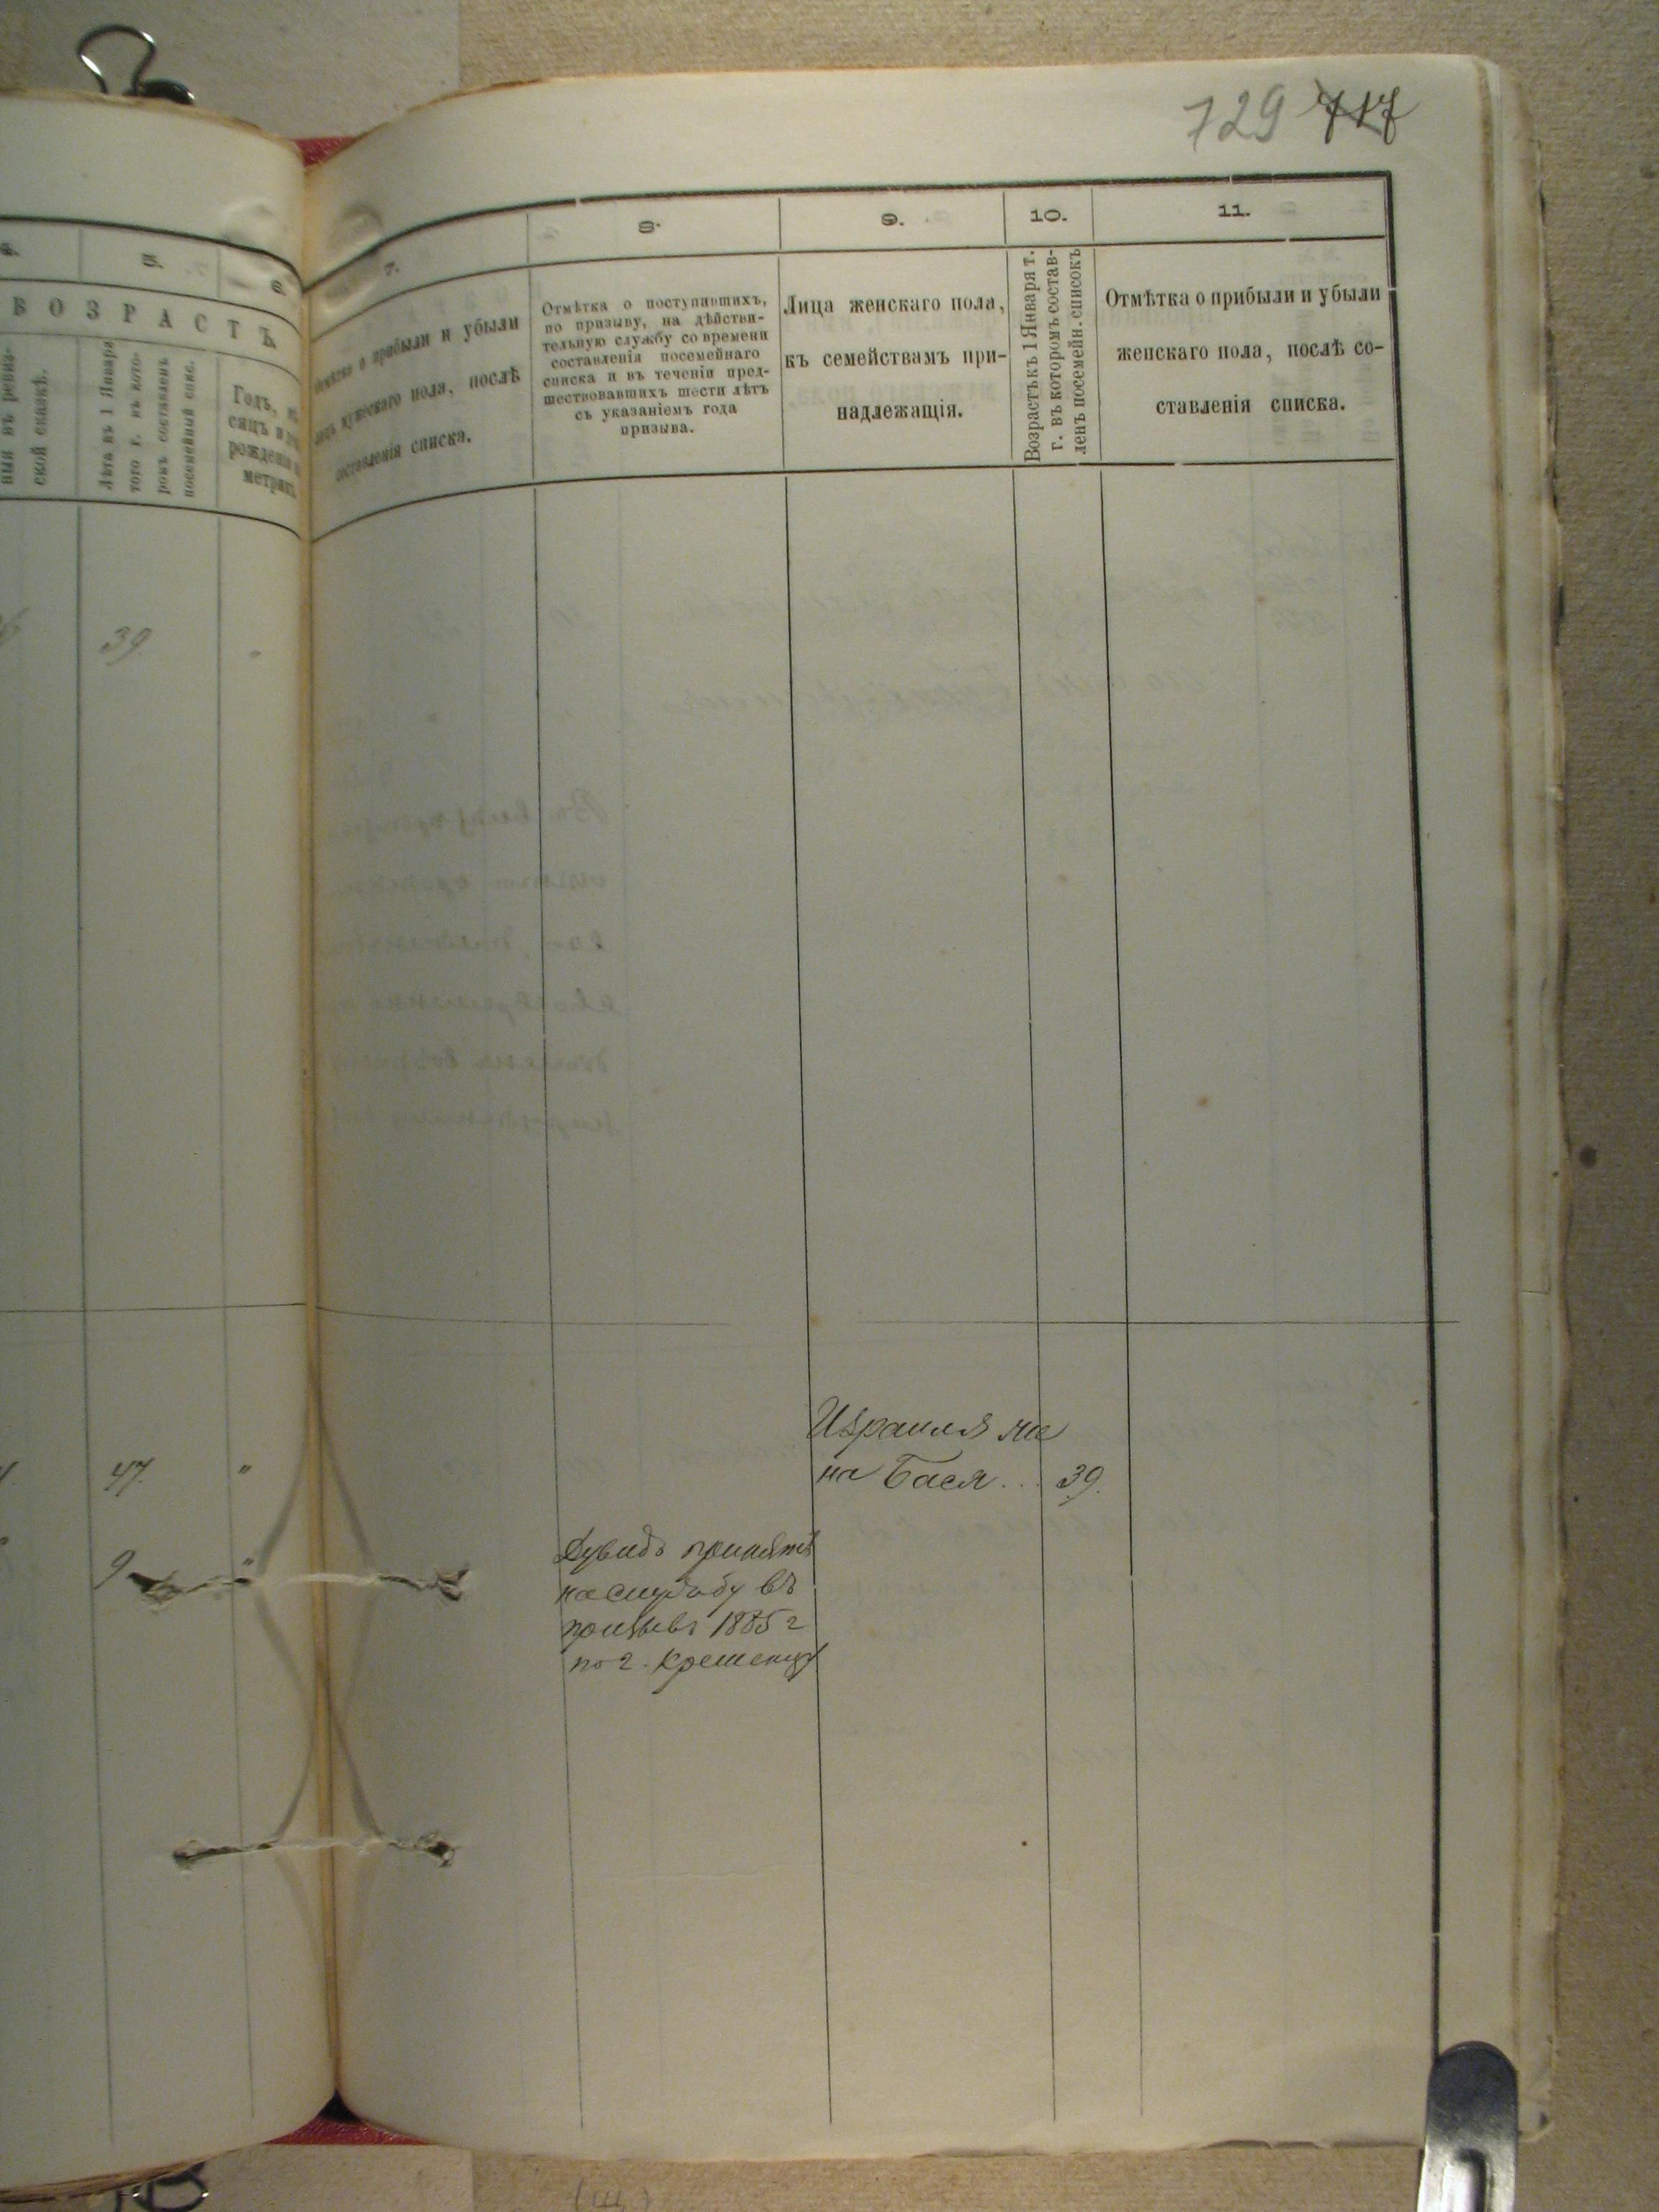 729 717
4. 5. 6.
ВОЗРАСТЪ
ской сказкѣ.
Лѣта къ 1 Января
того г. въ кото-
ромъ составленъ
посемейный спис.
Годъ, мѣ-
сяцъ и
рожденія
метрик
7.
Отмѣтка о прибыли и убыли
лицъ мужескаго пола, послѣ
составленія списка.
8.
Отмѣтка о поступившихъ,
по призыву, на дѣйстви-
тельную службу со времени
составленія посемейнаго
списка и въ теченіи пред-
шествовавшихъ шести лѣтъ
съ указаніемъ года
призыва.
9.
Лица женскаго пола,
къ семействамъ при-
надлежащія.
10.
Возрастъ къ 1 Января т.
г. въ которомъ состав-
ленъ посемейн. списокъ
11.
Отмѣтка о прибыли и убыли
женскаго пола, послѣ со-
ставленія списка.
39
47. "
9 "
Израиля же
на Бася... 39.
Дувидъ принятъ
на службу въ
призывъ 1885 г
по г. Кременцу